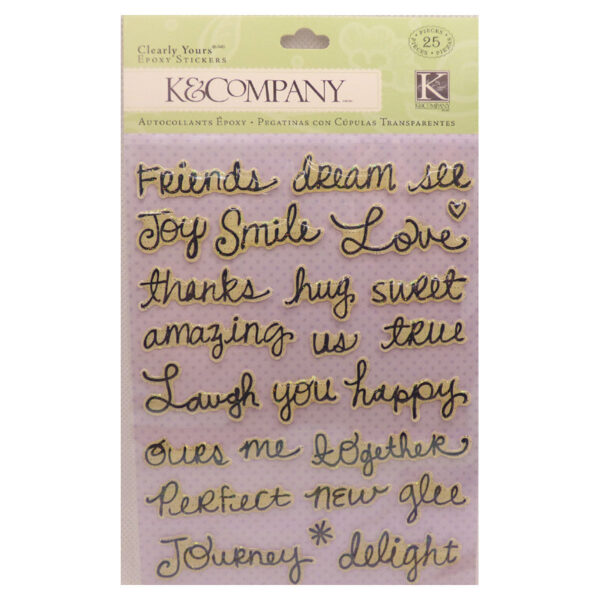 Clearly Yours
Epoxy Stickers
K&Company
Autocollants Époxy • Pegatinas con Cúpulas Transparentes
PIECES
25
K
K&COMPANY
Friends dream see
Joy Smile Love
thanks hug sweet
amazing us true
Laugh you happy
ours me together
Perfect new glee
Journey * delight